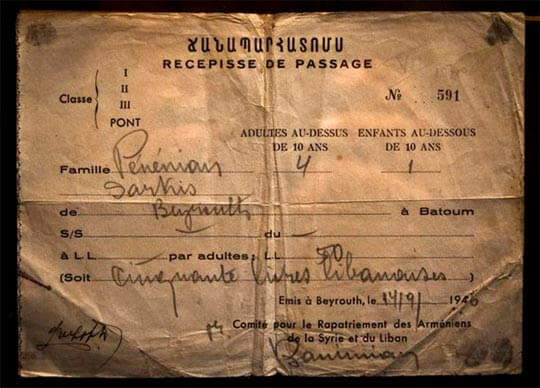 ՃԱՆԱՊԱՐՀԱՏՈՄՍ
RECEPISSE DE PASSAGE
Classe
I
II
III
PONT
№ 591
ADULTES AU-DESSUS DE 10 ANS
ENFANTS AU-DESSOUS DE 10 ANS
Famille Pénénian 4 1
Sarkis
de Beyrouth à Batoum
S/S — du —
à L.L. par adultes: LL 50
(Soit Cinquante livres libanaises)
Emis à Beyrouth, le 14/9/ 1946
Comité pour le Rapatriement des Arméniens
de la Syrie et du Liban